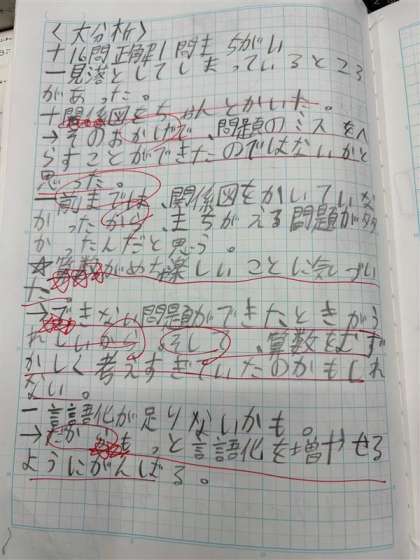 <大分析>
+16問正解1問まちがい
ー見落としてしまっているところ
があった。
+関係図をちゃんとかいた。
→そのおかげで、問題のミスをへ
らすことができたのではないかと
思った。
ー前までは、関係図をかいていな
かったから、まちがえる問題が多
かったんだと思う。
☆算数がめっちゃ楽しいことに気づい
た。
→できない問題ができたときがう
れしいから、そして、算数をむず
かしく考えすぎていたのかもしれ
ない。
ー言語化が足りないかも。
→だから、もっと言語化を増やせる
ようにがんばる。